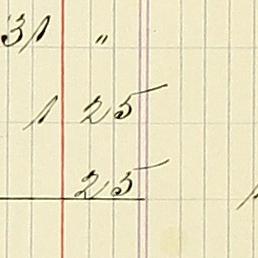 31 "
1 25
25